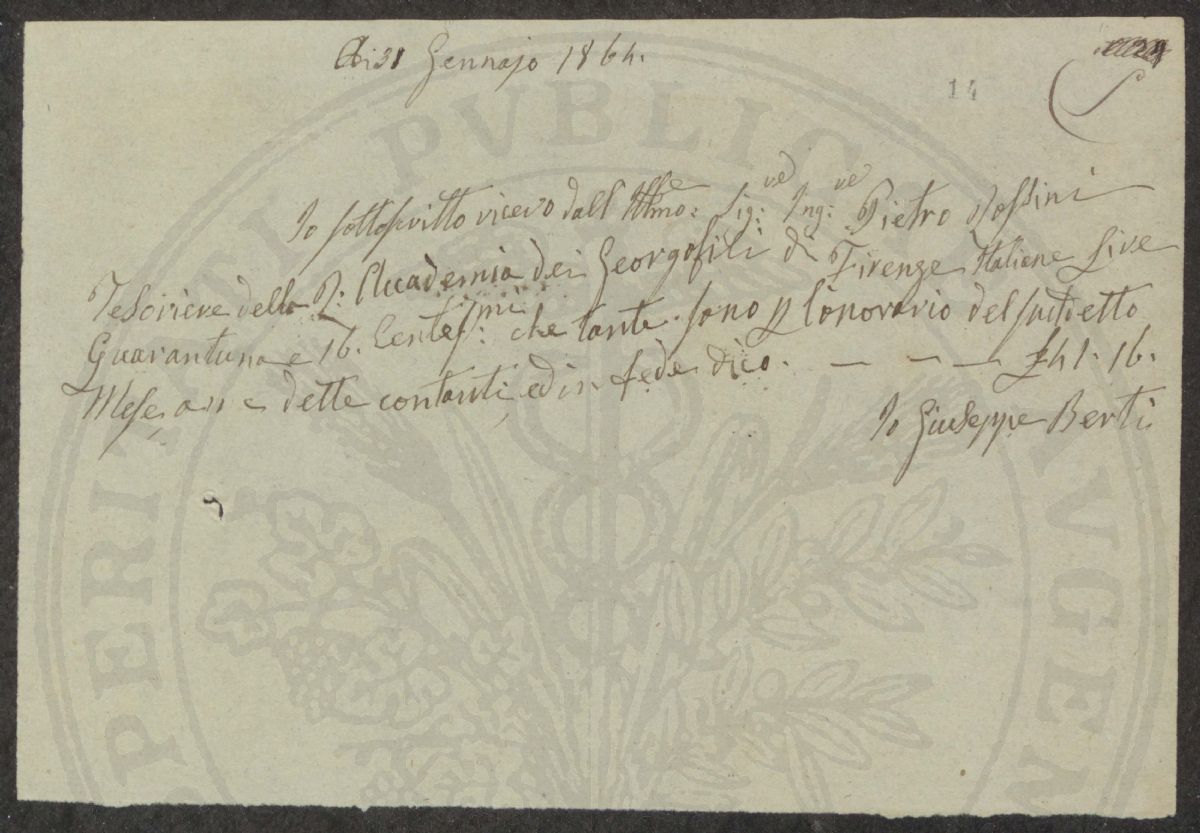 A di 31 Gennajo 1864.
14
Io sottoscritto ricevo dall Illmo: Sig:re Ing:re Pietro Rossini
Tesoriere della R: Accademia dei Georgofili di Firenze Italiane Lire
Quarantuna e 16. Centes:mi che tante sono p l'onorario del suddetto
Mese, e dette contanti, ed in fede dico. — — — £ 41. 16.
Io Giuseppe Berti
PERITATI PVBLIC AVGEN